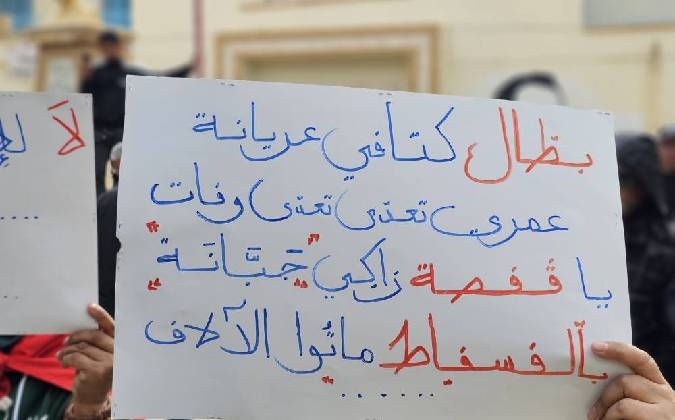 بطال كتافي عريانة
عمري تعدى تعدى وفات
يا ڨفصة زاكي "جَبَّانَة"
بالفسفاط ماتُوا الآلاف
.......
لَا